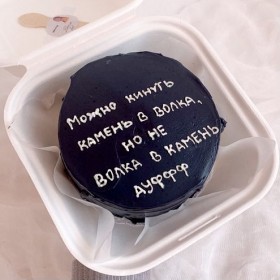 Можно кинуть
камень в волка,
но не
волка в камень
ауффф